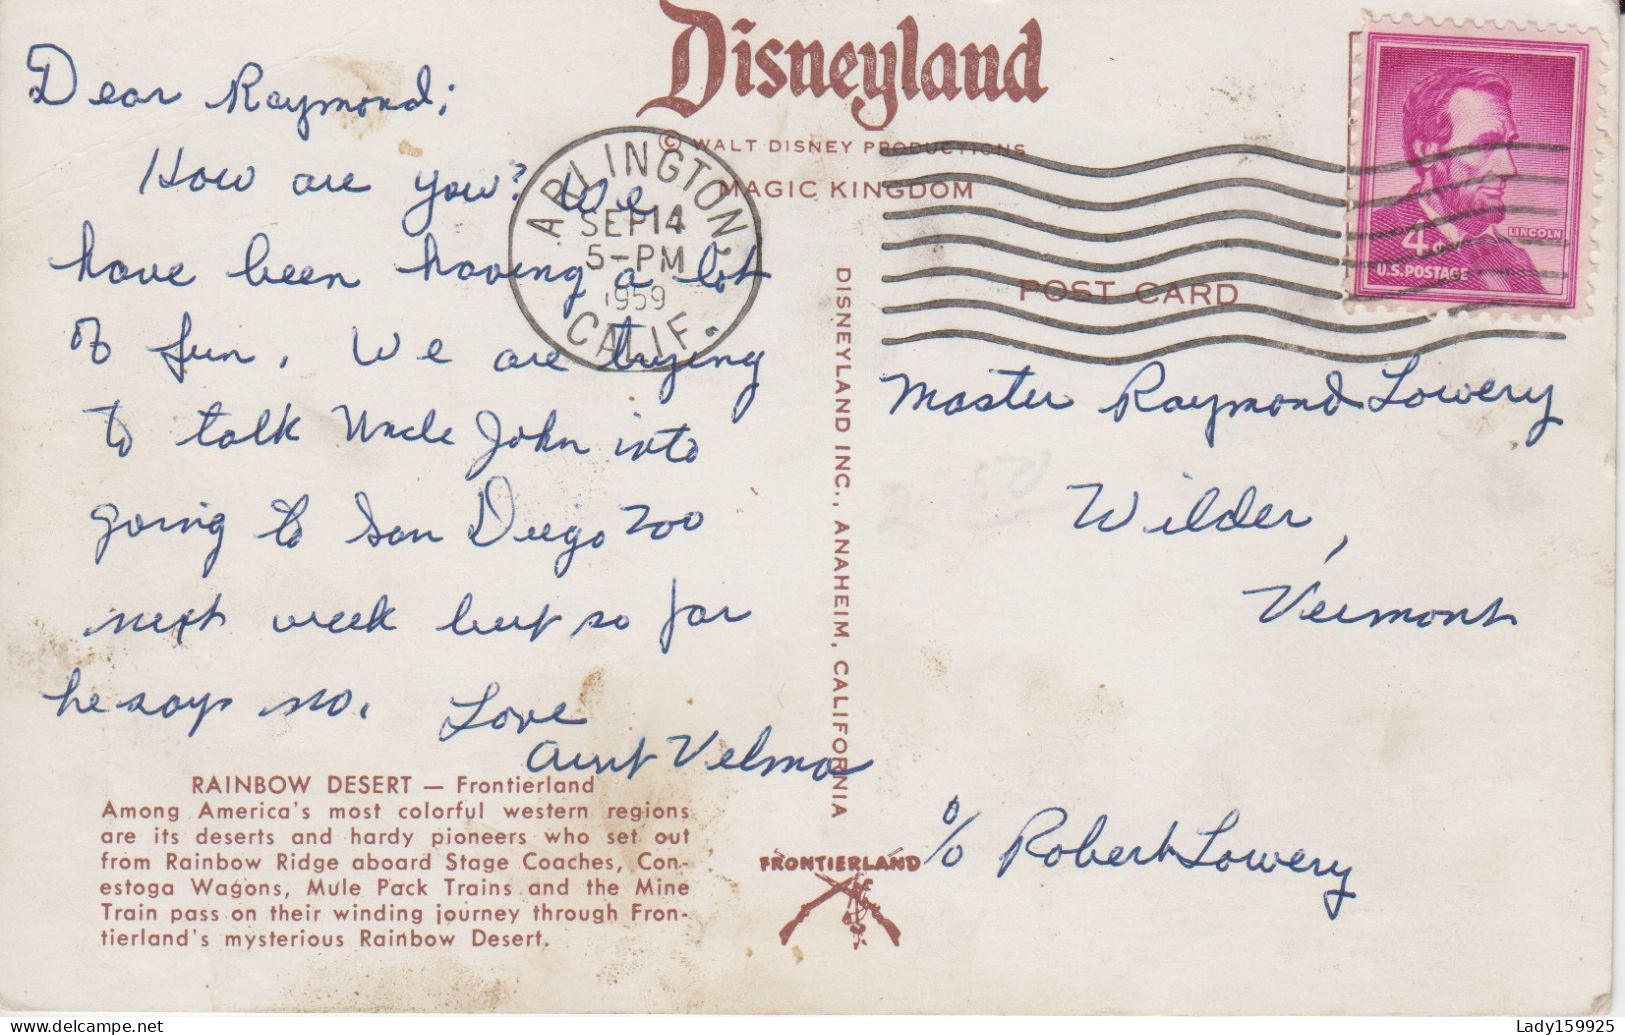 Disneyland
© WALT DISNEY PRODUCTIONS
MAGIC KINGDOM
POST CARD
ARLINGTON,
SEP 14
5-PM
1959
CALIF.
LINCOLN
4¢
U.S. POSTAGE
Dear Raymond;
How are you? We
have been having a lot
of fun. We are trying
to talk Uncle John into
going to San Diego zoo
next week but so far
he says no. Love
Aunt Velma
RAINBOW DESERT — Frontierland
Among America's most colorful western regions
are its deserts and hardy pioneers who set out
from Rainbow Ridge aboard Stage Coaches, Con-
estoga Wagons, Mule Pack Trains and the Mine
Train pass on their winding journey through Fron-
tierland's mysterious Rainbow Desert.
DISNEYLAND INC., ANAHEIM, CALIFORNIA
FRONTIERLAND
Master Raymond Lowery
Wilder,
Vermont
c/o Robert Lowery
www.delcampe.net
Lady159925